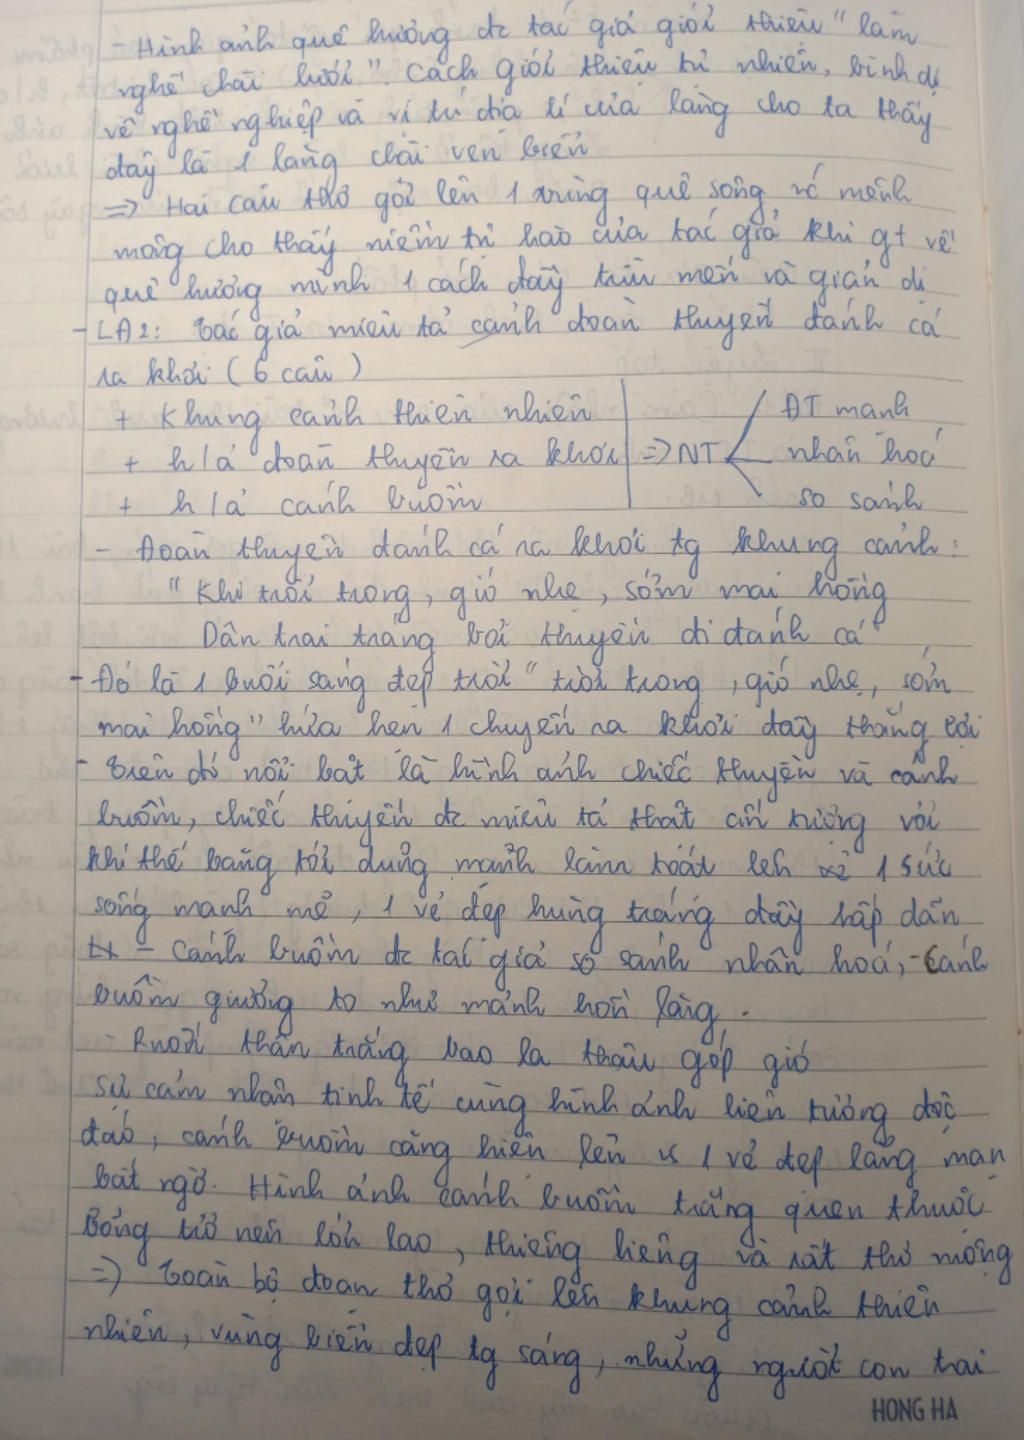 - Hình ảnh quê hương đc tác giả giới thiệu " làm
nghề chài lưới". Cách giới thiệu tự nhiên, bình dị
về nghề nghiệp và vị trí địa lí của làng cho ta thấy
đây là 1 làng chài ven biển
=> Hai câu thơ gợi lên 1 vùng quê sông nc mênh
mông cho thấy niềm tự hào của tác giả khi gt về
quê hương mình 1 cách đầy trìu mến và giản dị
- LĐ2: Tác giả miêu tả cảnh đoàn thuyền đánh cá
ra khơi ( 6 câu )
+ Khung cảnh thiên nhiên
+ h/ả đoàn thuyền ra khơi
+ h/ả cánh buồm
=> NT
ĐT mạnh
nhân hoá
so sánh
- Đoàn thuyền đánh cá ra khơi tg khung cảnh :
" Khi trời trong, gió nhẹ, sớm mai hồng
Dân trai tráng bơi thuyền đi đánh cá "
- Đó là 1 buổi sáng đẹp trời " trời trong, gió nhẹ, sớm
mai hồng" hứa hẹn 1 chuyến ra khơi đầy thắng lợi
- Trên đó nổi bật là hình ảnh chiếc thuyền và cánh
buồm, chiếc thuyền đc miêu tả thật ấn tượng với
khí thế băng tới dũng mãnh làm toát lên vẻ 1 sức
sống mạnh mẽ, 1 vẻ đẹp hùng tráng đầy hấp dẫn
- Cánh buồm đc tác giả so sánh nhân hoá, - Cánh
buồm giương to như mảnh hồn làng.
Rướn thân trắng bao la thâu góp gió
Sự cảm nhận tinh tế cùng hình ảnh liên tưởng độc
đáo, cánh buồm căng hiện lên vs 1 vẻ đẹp lãng mạn
bất ngờ. Hình ảnh cánh buồm trắng quen thuộc
Bỗng trở nên lớn lao, thiêng liêng và rất thơ mộng
=> Toàn bộ đoạn thơ gợi lên khung cảnh thiên
nhiên, vùng biển đẹp tg sáng, những người con trai
HONG HA